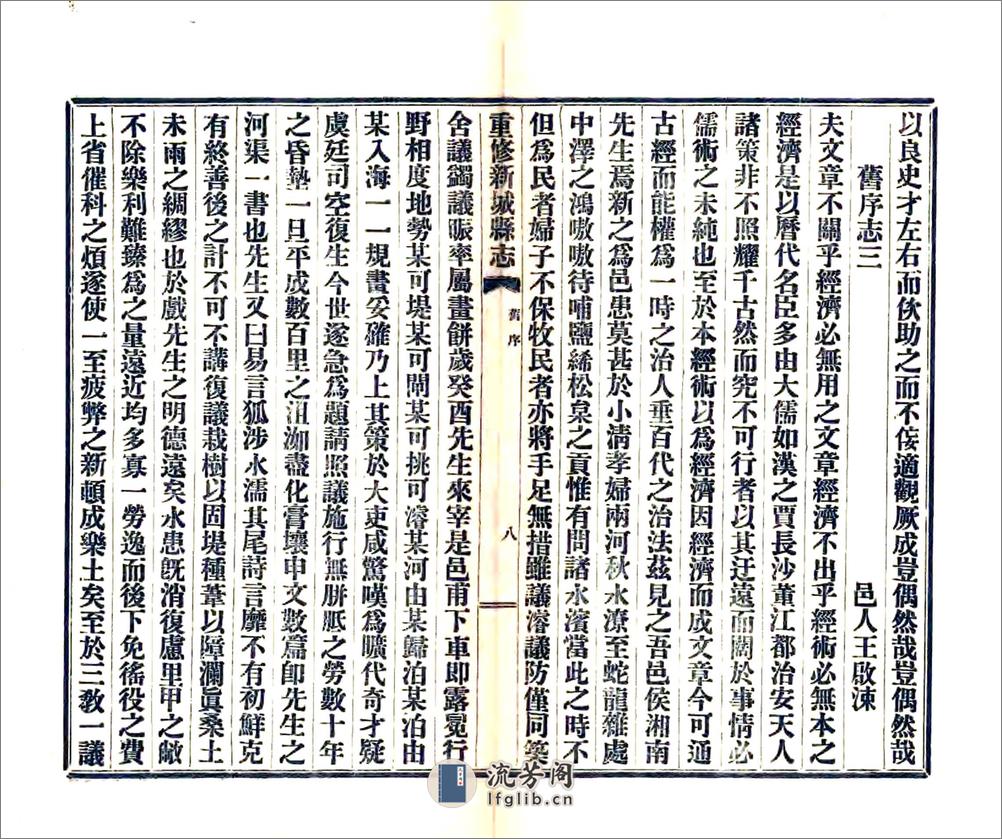 以良史才左右而佽助之而不佞適觀厥成豈偶然哉豈偶然哉
舊序志三
邑人王啟涑
夫文章不關乎經濟必無用之文章經濟不出乎經術必無本之
經濟是以曆代名臣多由大儒如漢之賈長沙董江都治安天人
諸策非不照耀千古然而究不可行者以其迂遠而闊於事情必
儒術之未純也至於本經術以爲經濟因經濟而成文章今可通
古經而能權爲一時之治人垂百代之治法茲見之吾邑侯湘南
先生焉新之爲邑患莫甚於小清孝婦兩河秋水潦至蛇龍雜處
中澤之鴻嗷嗷待哺鹽絺松枲之貢惟有問諸水濱當此之時不
但爲民者婦子不保牧民者亦將手足無措雖議濬議防僅同築
重修新城縣志
舊序
八
舍議蠲議賑率屬畫餅歲癸酉先生來宰是邑甫下車即露冕行
野相度地勢某可堤某可閘某可挑可濬某河由某歸泊某泊由
某入海一一規畫妥確乃上其策於大吏咸驚嘆爲曠代奇才疑
虞廷司空復生今世遂急爲題請照議施行無胼胝之勞數十年
之昏墊一旦平成數百里之沮洳盡化膏壤申文數篇即先生之
河渠一書也先生又曰易言狐涉水濡其尾詩言靡不有初鮮克
有終善後之計不可不講復議栽樹以固堤種葦以障瀾眞桑土
未雨之綢繆也於戲先生之明德遠矣水患旣消復慮里甲之敝
不除樂利難臻爲之量遠近均多寡一勞逸而後下免徭役之費
上省催科之煩遂使一至疲弊之新頓成樂土矣至於三敎一議
流芳阁
lfglib.cn